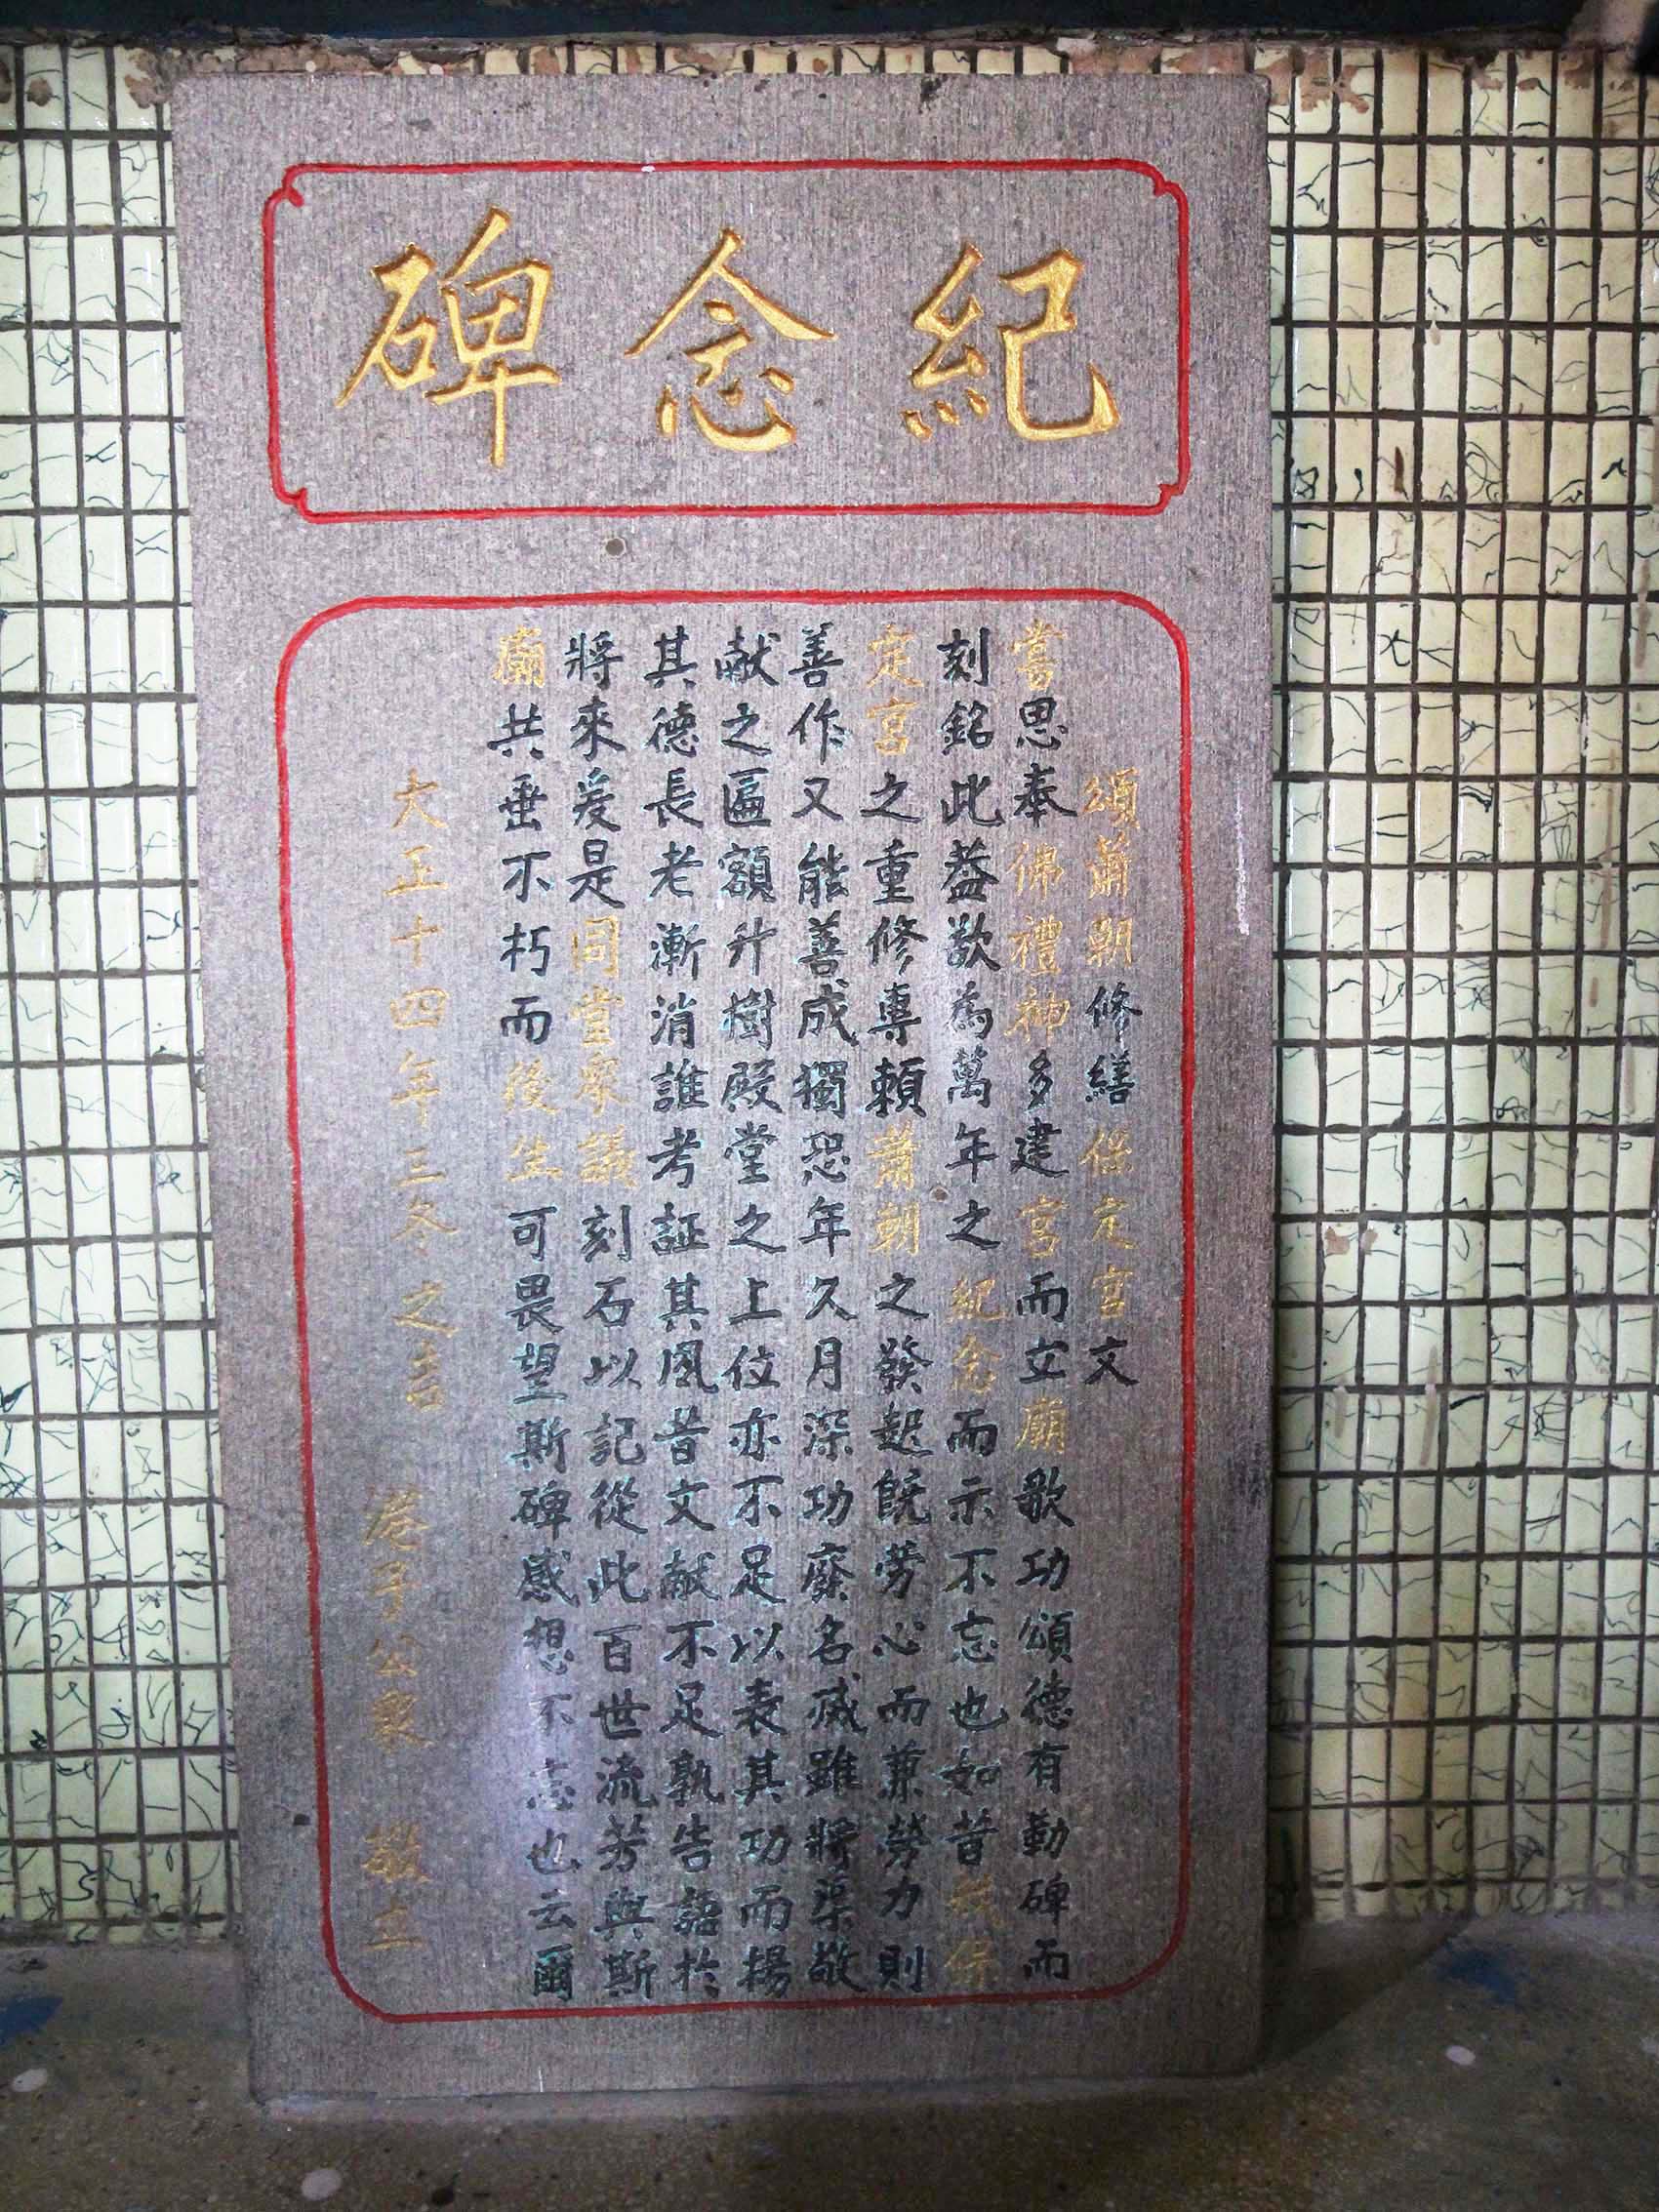 紀念碑
頌蕭朝修繕保定宮文
嘗思奉佛禮神多建宮而立廟歌功頌德有勤碑而
刻銘此益欲為萬年之紀念而示不忘也如昔我保
定宮之重修專賴蕭朝之發起既勞心而兼勞力則
善作又能善成獨恐年久月深功廢名滅雖將渠敬
献之匾額升樹殿堂之上位亦不足以表其功而揚
其德長老漸消誰考証其風昔文献不足孰告語於
將來爰是同堂眾議刻石以記從此百世流芳與斯
廟共垂不朽而後生可畏望斯碑感想不忘也云爾
大正十四年三冬之吉 港子公眾 敬立